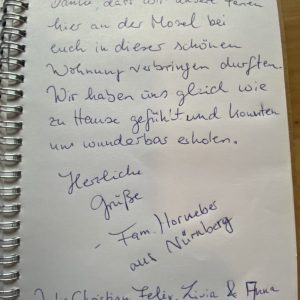 Danke, dass wir unsere Ferien
hier an der Mosel bei
euch in dieser schönen
Wohnung verbringen durften.
Wir haben uns gleich wie
zu Hause gefühlt und konnten
uns wunderbar erholen.
Herzliche
Grüße
- Fam. Horneber
aus Nürnberg
Christian, Felix, Livia & Anna